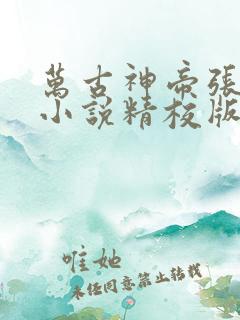 萬古神帝張
小說精校版
唯她
未經同意禁止轉載